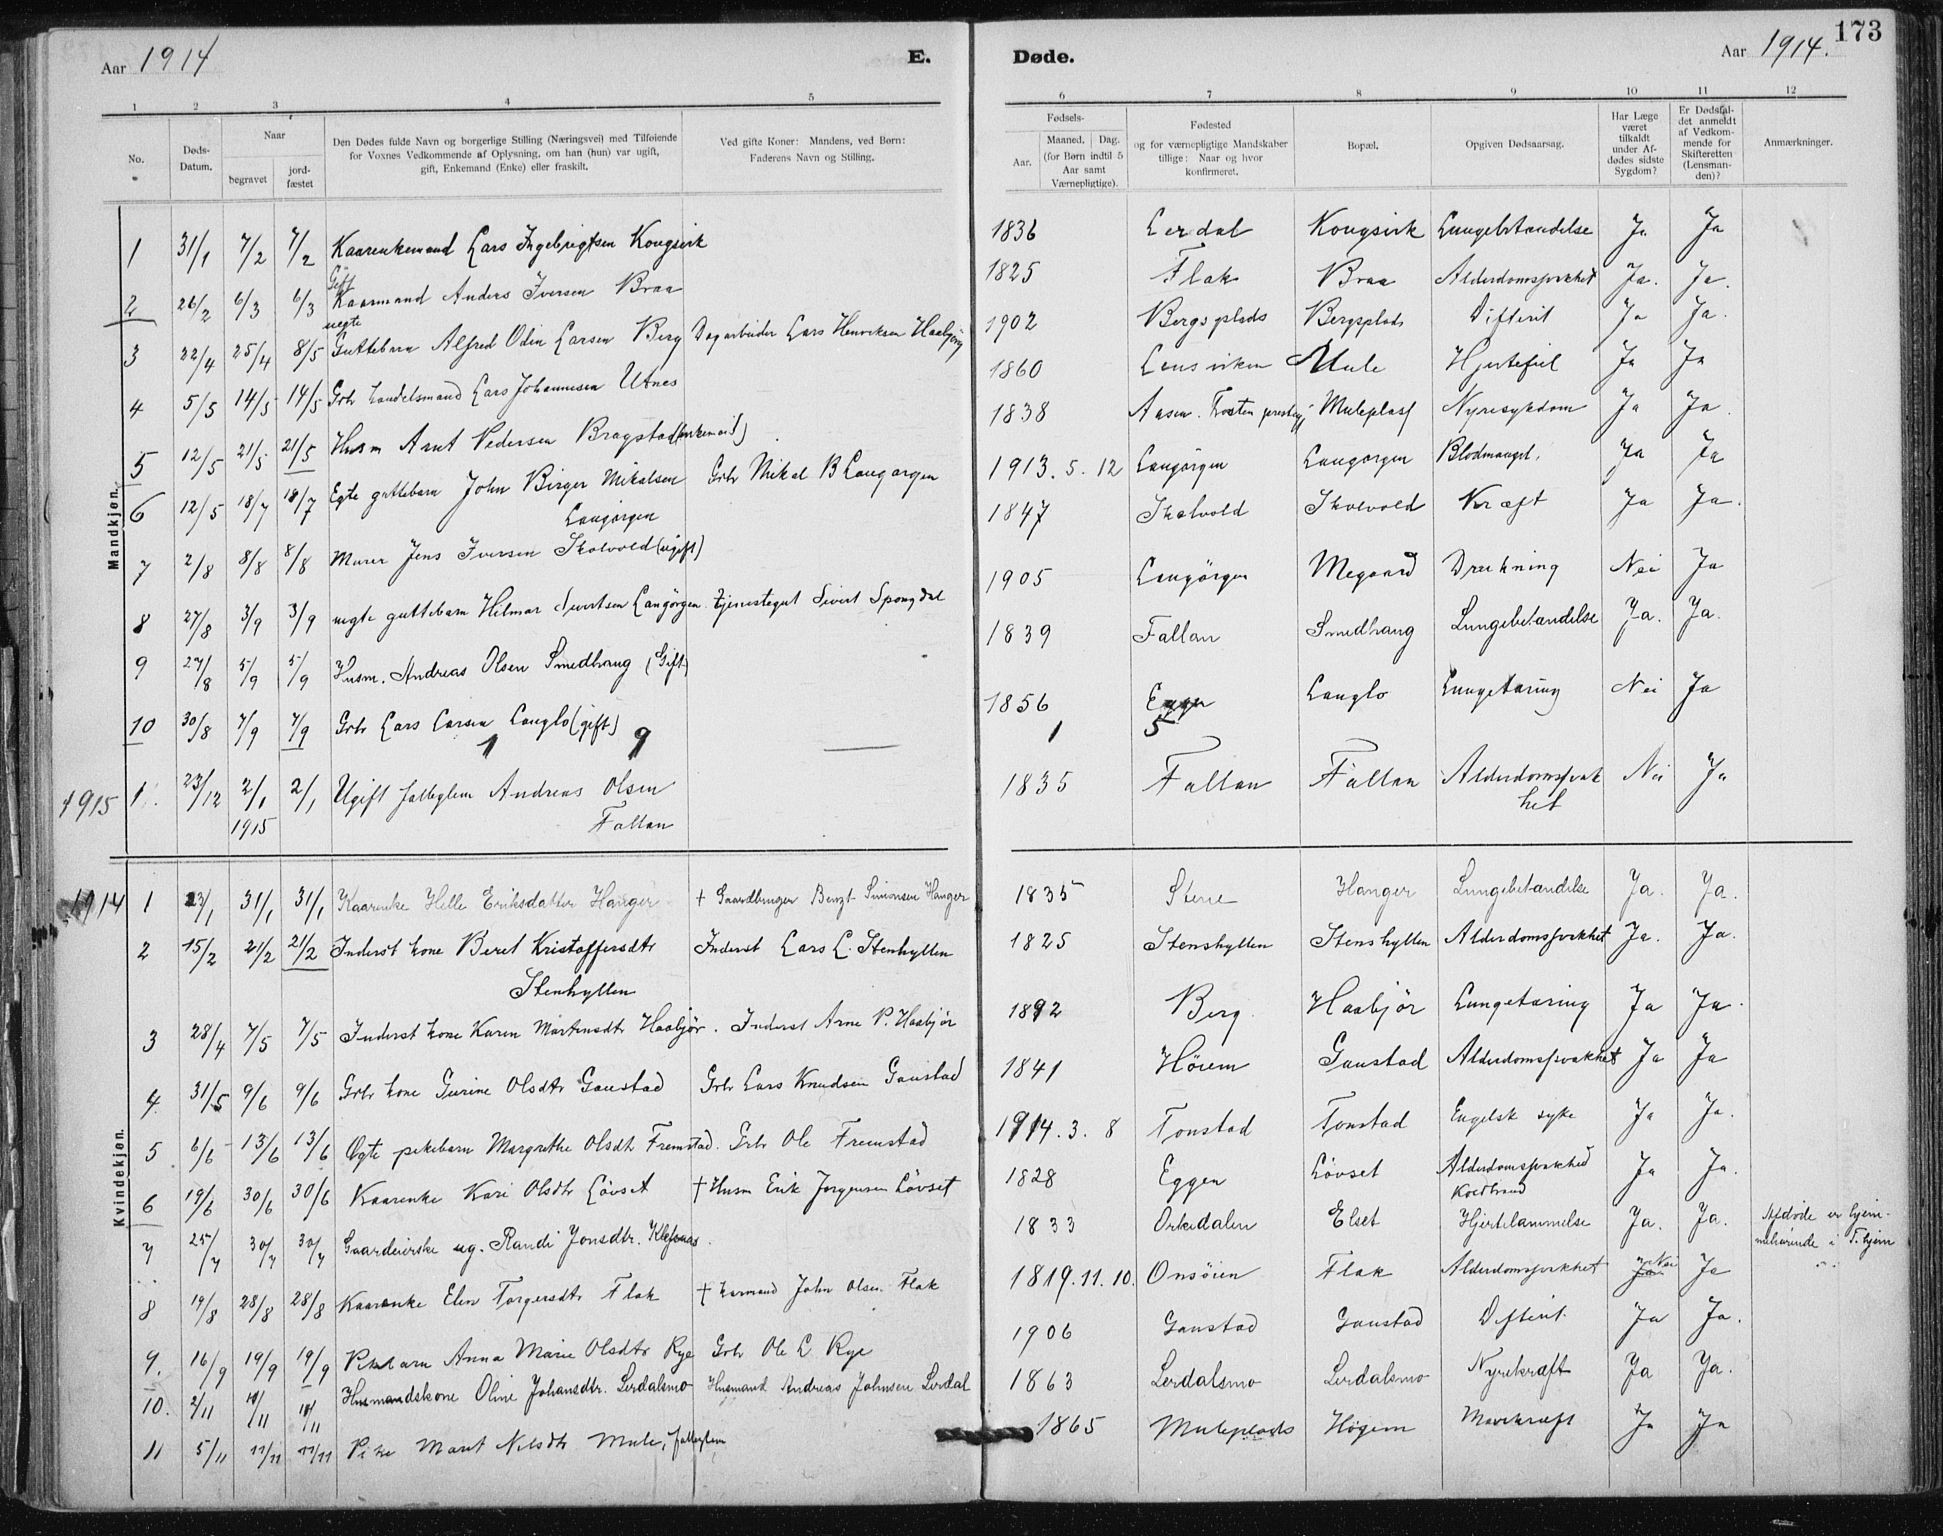 173
Aar 1914
E.
Døde.
Aar 1914.
1 2 3 4 5 6 7 8 9 10 11 12
No.
Døds-Datum.
Naar
begravet
jord-fæstet
Den Dødes fulde Navn og borgerlige Stilling (Næringsvei) med Tilføiende
for Voxnes Vedkommende af Oplysning, om han (hun) var ugift,
gift, Enkemand (Enke) eller fraskilt.
Ved gifte Koner: Mandens, ved Børn:
Faderens Navn og Stilling.
Fødsels-
Aar.
Maaned. Dag.
(for Børn indtil 5
Aar samt
Værnepligtige).
Fødested
og for værnepligtige Mandskaber
tillige: Naar og hvor
konfirmeret.
Bopæl.
Opgiven Dødsaarsag.
Har Læge
været
tilkaldt
under Af-
dødes sidste
Sygdom?
Er Dødsfal-
det anmeldt
af Vedkom-
mende for
Skifteretten
(Lensman-
den)?
Anmærkninger.
Mandkjøn.
1 31/1 7/2 7/2 Kaarenkemand Lars Ingebrigtsen Kongsvik 1836 Lerdal Kongsvik Lungebetændelse Ja Ja
Gift
2 26/2 6/3 6/3 Kaarmand Anders Iversen Braa 1825 Flak Braa Alderdomssvakhet Ja. Ja.
uegte
3 22/4 25/4 8/5 Guttebarn Alfred Odin Larsen Berg Dagarbeider Lars Henriksen Haabjør 1902 Bergsplads Bergsplads Difterit Ja Ja.
4 5/5 14/5 14/5 Gbr Handelsmand Lars Johannesen Utnes 1860 Lensviken Mule Hjertefeil Ja Ja
5 12/5 21/5 21/5 Husm Arnt Pedersen Bragstad (enkem) 1838 Aasen. Frosten prestegj Muleplass Nyresykdom Ja Ja.
6 12/5 18/7 18/7 Egte guttebarn John Birger Mikalsen Gbr Mikal B Langørgen 1913. 5. 12 Langørgen Langørgen Blodmangel. Ja Ja
Langørgen
7 2/8 8/8 8/8 Murer Jens Iversen Skolvold (ugift) 1847 Skolvold Skolvold Kræft Ja Ja.
8 27/8 3/9 3/9 uegte guttebarn Hilmar Sivertsen Langørgen. Tjenestegut Sivert Spongdal 1905 Langørgen Megaard Drukning Nei Ja
9 27/8 5/9 5/9 Husm. Andreas Olsen Smedhaug (Gift) 1839 Fallan Smedhaug Lungebetændelse Ja. Ja.
10 30/8 7/9 7/9 Gbr Lars Larsen Langlo (gift) 1856 Eggen Langlo Lungetæring Nei Ja
1 9 1 5
1915 1. 23/12 2/1 2/1 Ugift fattiglem Andreas Olsen 1835 Fallan Fallan Alderdomssvak Nei Ja
1915 Fallan het
Kvindekjøn.
1914 1 23/1 31/1 31/1 Kaarenke Helle Eriksdatter Hanger + Gaardbruger Bengt Simonsen Hanger 1835 Stene Hanger Lungebetændelse Ja. Ja.
2 15/2 21/2 21/2 Inderst kone Beret Kristoffersdtr Inderst Lars L. Stenhyllen 1825 Stenshyllen Stenshyllen Alderdomssvakhet Ja. Ja.
Stenhyllen
3 28/4 7/5 7/5 Inderst kone Karen Martensdtr Haabjør. Inderst Arne P. Haabjør 1892 Berg. Haabjør Lungetæring Ja Ja.
4 31/5 9/6 9/6 Gbr kone Gurine Olsdtr Gaustad Gbr Lars Knudsen Gaustad 1841 Høiem Gaustad Alderdomssvakhet Ja Ja
5 6/6 13/6 13/6 Egte pikebarn Margrethe Olsdtr Fremstad. Gbr Ole Fremstad 1914. 3. 8 Tonstad Tonstad Engelsk syke Ja Ja.
6 19/6 30/6 30/6 Kaarenke Kari Olsdtr Løvset + Husm Erik Jørgensen Løvset 1828 Eggen Løvset Alderdomssvakhed Ja Ja.
Koldbrand
7 25/7 30/7 30/7 Gaardeierske ug. Randi Jonsdtr. Klefsaas. 1833 Orkedalen Elset Hjertelammelse Ja. Ja. Afdøde er hjem-
mehørende i T.hjem
8 19/8 28/8 28/8 Kaarenke Elen Torgersdtr Flak + karmand John Olsen Flak 1819. 11. 10. Onsøien Flak Alderdomssvakhet Ja Nei Ja
9. 16/9 19/9 19/9 Pikebarn Anna Marie Olsdtr Rye Gbr Ole L Rye 1906 Gaustad Gaustad Difterit. Ja Ja.
10. 2/11 10/11 10/11 Husmandskone Oline Johansdtr. Lerdalsmo Husmand Andreas Johnsen Lerdal 1863 Lerdalsmo Lerdalsmo Nyrekræft Ja Ja.
11 5/11 11/11 11/11 Pike Marit Nilsdtr Mule, fattiglem 1865 Muleplads Høgem Mavekræft Ja Ja